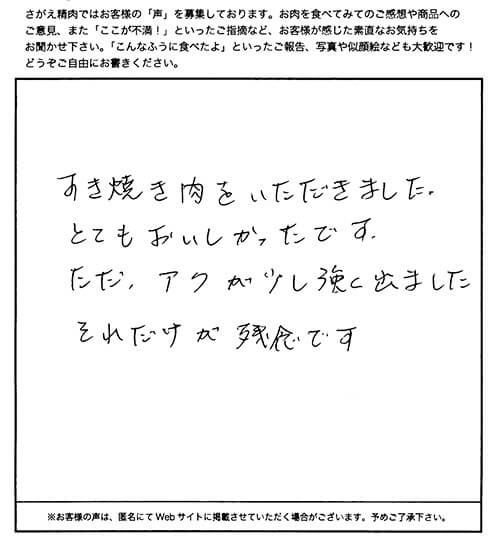 さがえ精肉ではお客様の「声」を募集しております。お肉を食べてみてのご感想や商品への
ご意見、また「ここが不満！」といったご指摘など、お客様が感じた素直なお気持ちを
お聞かせ下さい。「こんなふうに食べたよ」といったご報告、写真や似顔絵なども大歓迎です！
どうぞご自由にお書きください。
すき焼き肉をいただきました。
とてもおいしかったです。
ただ、アクが少し強く出ました
それだけが残念です
※お客様の声は、匿名にてWebサイトに掲載させていただく場合がございます。予めご了承下さい。